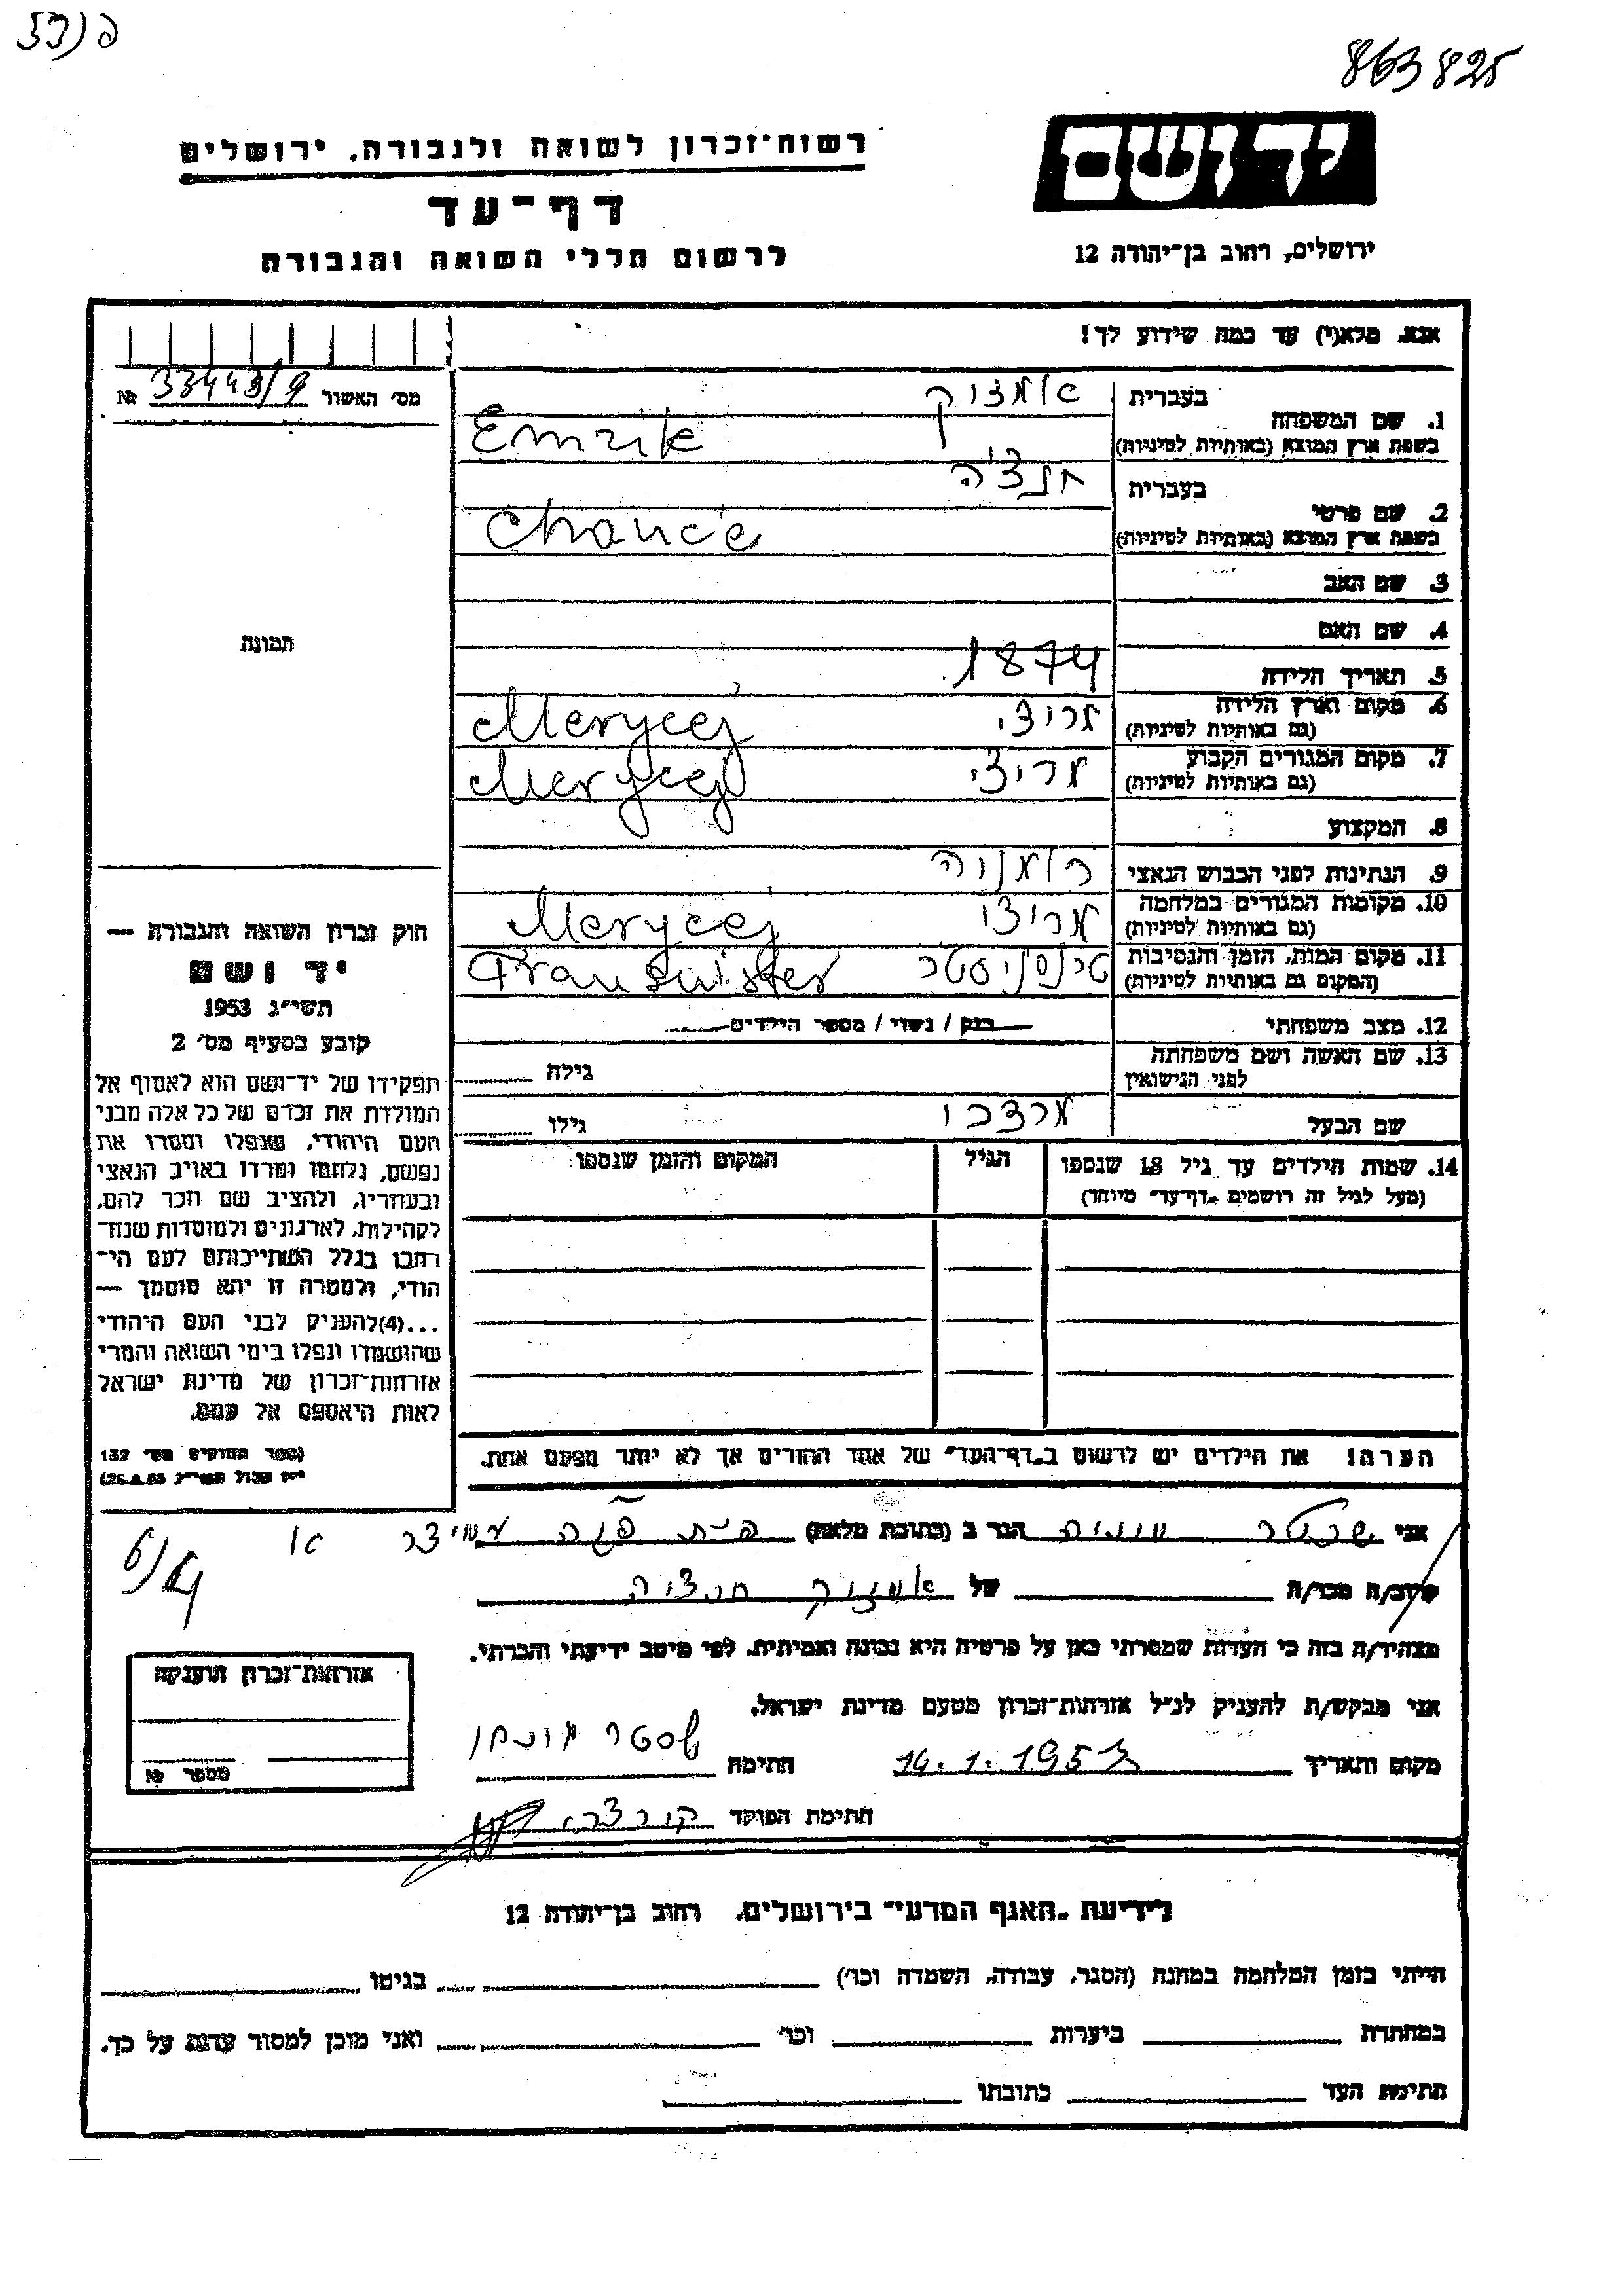 863825
רשות־זכרון לשואה ולגבורה, ירושלים
יד ושם
דף־עד
לרשום חללי השואה והגבורה
ירושלים, רחוב בן־יהודה 12
אנא, מלא(י) עד כמה שידוע לך!
מס׳ האשור 33443/9 №
בעברית
1. שם המשפחה
בשפת ארץ המוצא (באותיות לטיניות)
בעברית
2. שם פרטי
בשפת ארץ המוצא (באותיות לטיניות) Chance
3. שם האב
4. שם האם
תמונה
5. תאריך הלידה 1874
6. מקום וארץ הלידה
(גם באותיות לטיניות) מריצי Merycej
7. מקום המגורים הקבוע
(גם באותיות לטיניות) מריצי Merycej
8. המקצוע
9. הנתינות לפני הכבוש הנאצי
10. מקומות המגורים במלחמה
(גם באותיות לטיניות) מריצי Merycej
11. מקום המות, הזמן והנסיבות
(המקום גם באותיות לטיניות)
12. מצב משפחתי רוק / נשוי / מספר הילדים
13. שם האשה ושם משפחתה
לפני הנישואין גילה
שם הבעל מרדכי גילו
14. שמות הילדים עד גיל 18 שנספו
(מעל לגיל זה רושמים „דף־עד״ מיוחד)
הגיל
המקום והזמן שנספו
חוק זכרון השואה והגבורה —
יד ושם
תשי״ג 1953
קובע בסעיף מס׳ 2
תפקידו של יד־ושם הוא לאסוף אל
המולדת את זכרם של כל אלה מבני
העם היהודי, שנפלו ומסרו את
נפשם, נלחמו ומרדו באויב הנאצי
ובעוזריו, ולהציב שם וזכר להם,
לקהילות, לארגונים ולמוסדות שנח־
רבו בגלל השתייכותם לעם הי־
הודי, ולמטרה זו יהא מוסמך —
...(4)להעניק לבני העם היהודי
שהושמדו ונפלו בימי השואה והמרי
אזרחות־זכרון של מדינת ישראל
לאות היאספם אל עמם.
(ספר החוקים מס׳ 132
הערה! את הילדים יש לרשום ב„דף־העד״ של אחד ההורים אך לא יותר מפעם אחת.
אני הגר ב (כתובת מלאה)
קרוב/ה מכר/ה של
מצהיר/ה בזה כי העדות שמסרתי כאן על פרטיה היא נכונה ואמיתית, לפי מיטב ידיעתי והכרתי.
אני מבקש/ת להעניק לנ״ל אזרחות־זכרון מטעם מדינת ישראל.
מקום ותאריך חתימה
חתימת הפוקד
אזרחות־זכרון הוענקה
מספר №
לידיעת „האגף המדעי״ בירושלים, רחוב בן־יהודה 12
הייתי בזמן המלחמה במחנה (הסגר, עבודה, השמדה וכו׳) בגיטו
במחתרת ביערות וכו׳ ואני מוכן למסור עדות על כך.
חתימת העד כתובתו